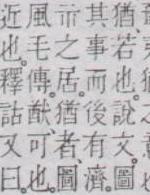 猶若也說文圖
其事而後有濟
之居猶者圖
風毛傳猷可也
近也釋詁又曰